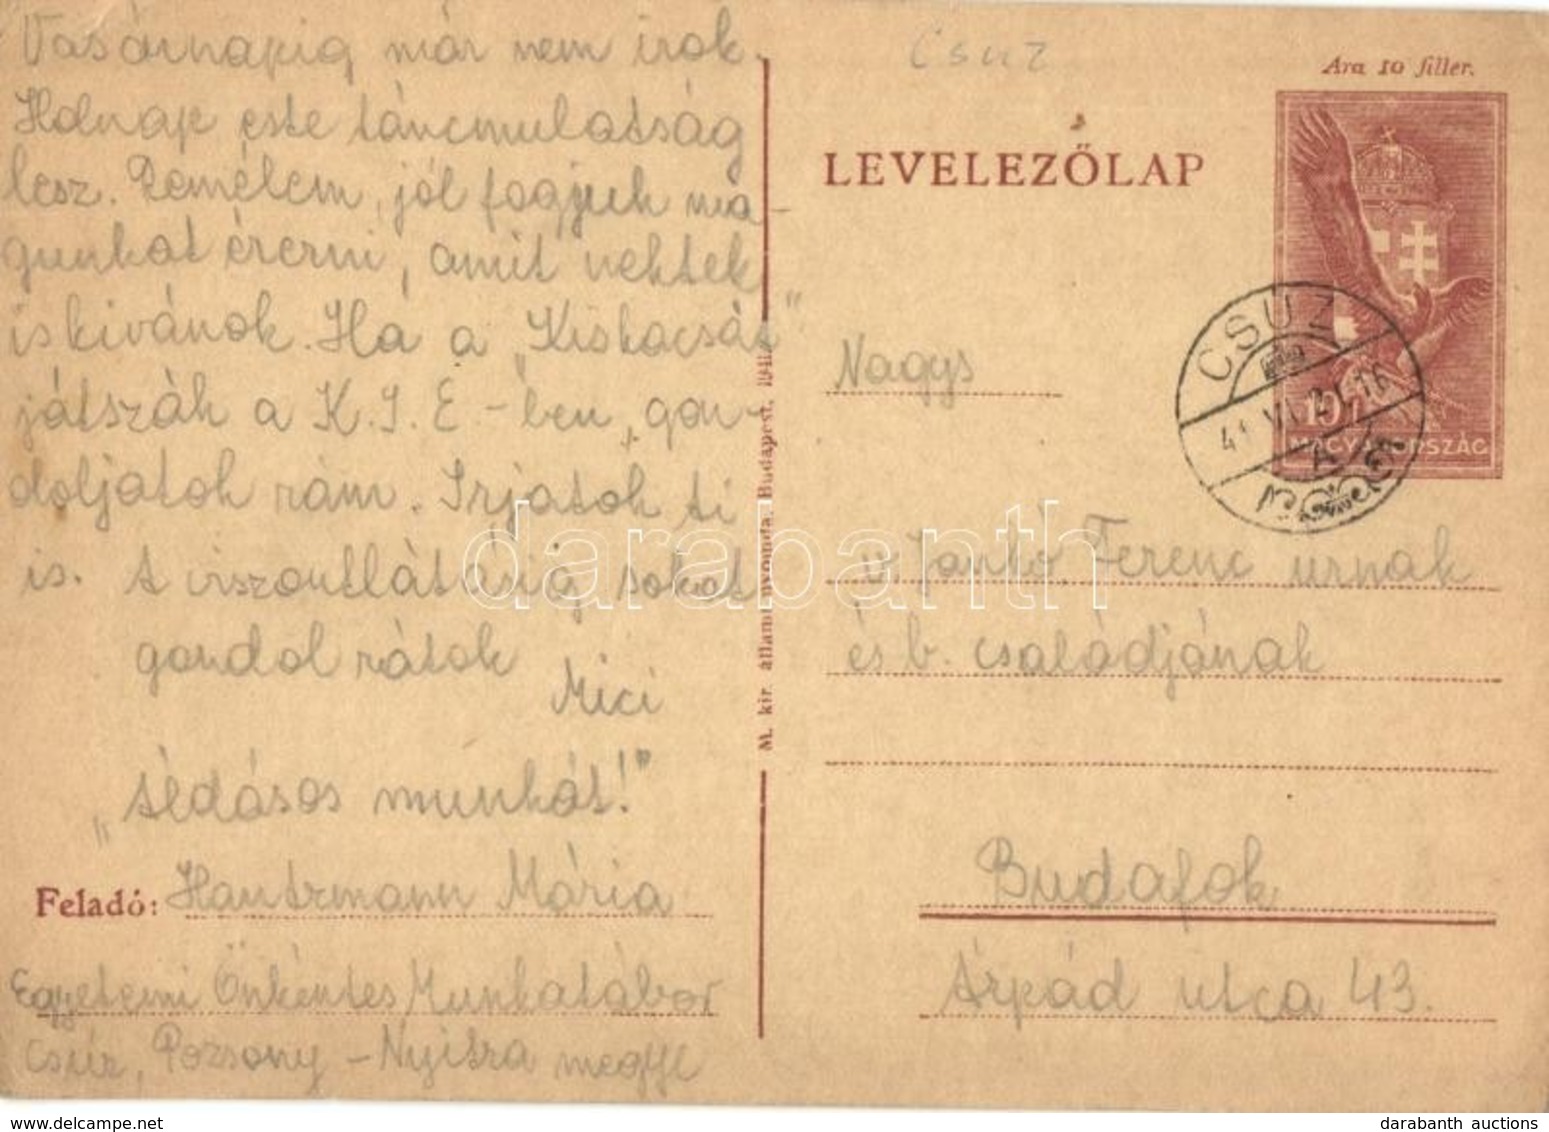 Vasárnapig már nem irok.
Holnap este táncmulatság
lesz. Remélem, jól fogjuk ma-
gunkat érezni, amit nektek
is kivánok. Ha a „Kiskacsát”
játszák a K.I.E-ben, gon-
doljatok rám. Irjatok ti
is. A viszontlátásig sokat
gondol rátok
Mici
„Áldásos munkát!”
Feladó: Hantzmann Mária
Egyetemi Önkéntes Munkatábor
Csúz, Pozsony-Nyitra megye
M. kir. állami nyomda, Budapest,
Csuz
Ára 10 fillér.
LEVELEZŐLAP
10
MAGYARORSZÁG
CSUZ
41 VI
A
Nagys
v. Jankó Ferenc urnak
és b. családjának
Budafok
Árpád utca 43.
darabanth
darabanth auctions